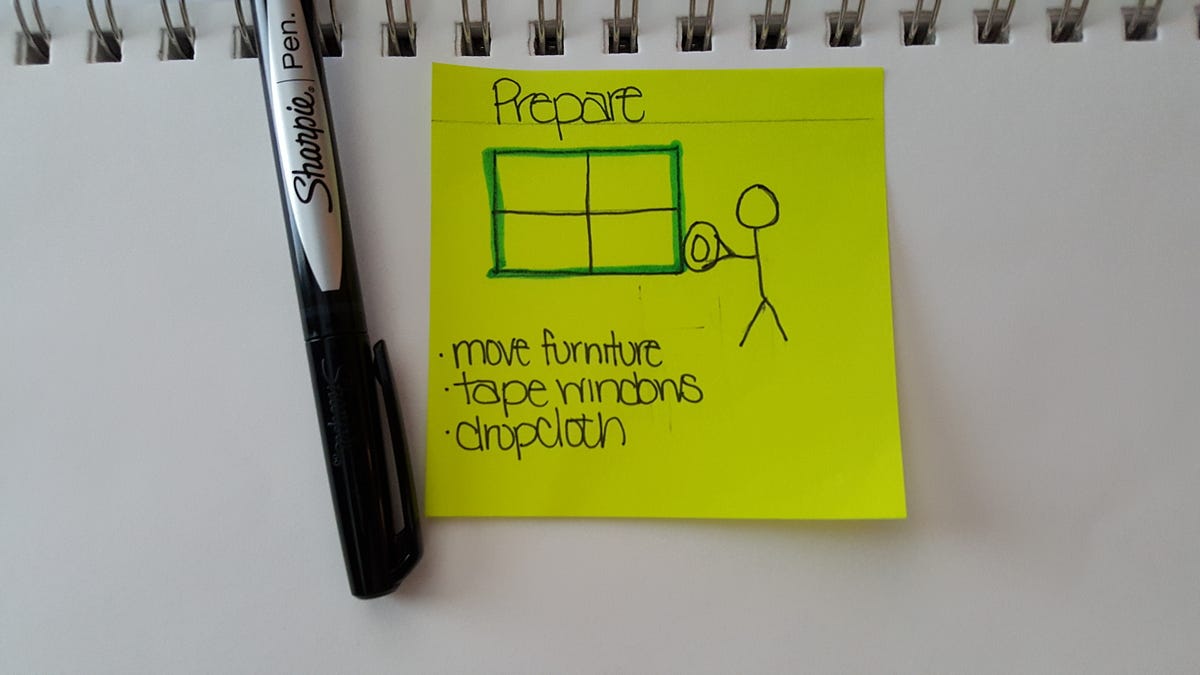 Sharpie. Pen.
Prepare
· move furniture
· tape windows
· dropcloth